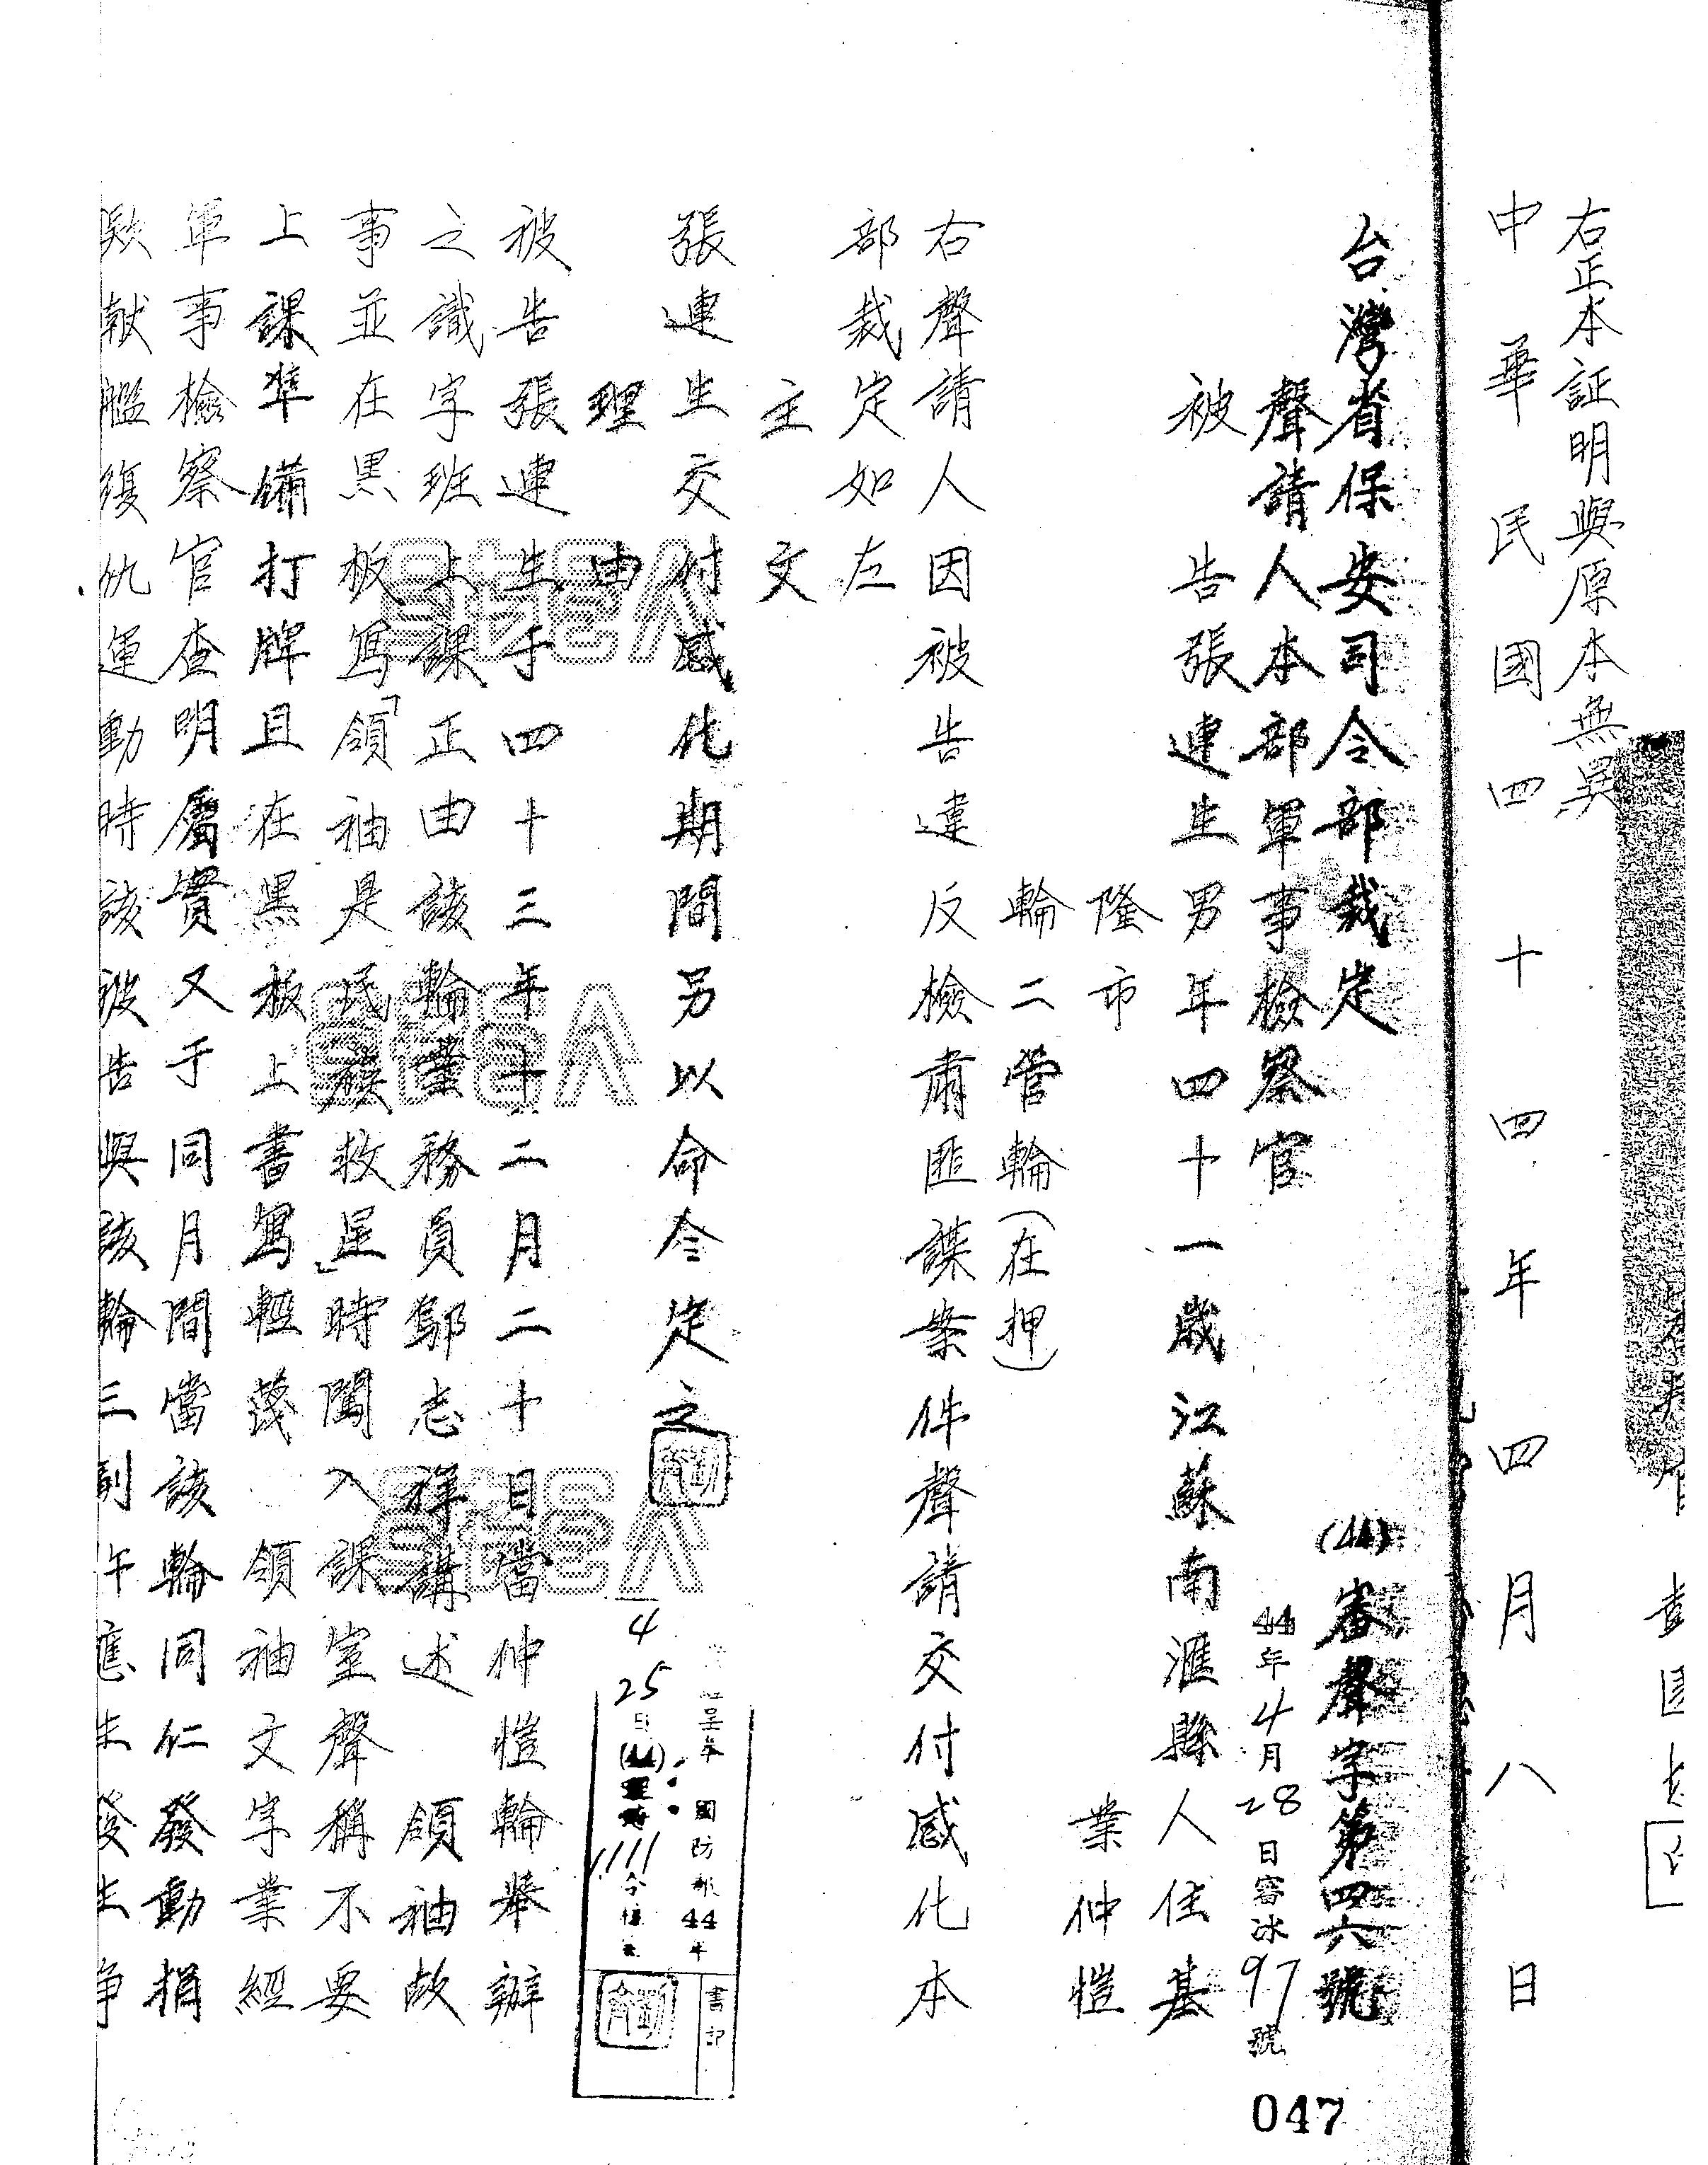 右正本証明與原本無異
中華民國四十四年四月八日
台灣省保安司令部裁定
(44)審聲字第四六號
44年4月28日審冰97號
聲請人本部軍事檢察官
被告張連生男年四十一歲江蘇南滙縣人住基
隆市
業仲愷
輪二管輪(在押)
右聲請人因被告違反檢肅匪諜案件聲請交付感化本
部裁定如左
主文
張連生交付感化期間另以命令定之
理由
被告張連生于四十三年十二月二十日當仲愷輪舉辦
之識字班上課正由該輪業務員鄔志祥講述 領袖故
事並在黑板寫「領袖是民族救星」時闖入課室聲稱不要
上課準備打牌且在黑板上書寫輕蔑 領袖文字業經
軍事檢察官查明屬實又于同月間當該輪同仁發動捐
款献艦復仇運動時該被告與該輪三副
4
25
日(44)
1111
呈奉
國防部44年
令核
書記
047